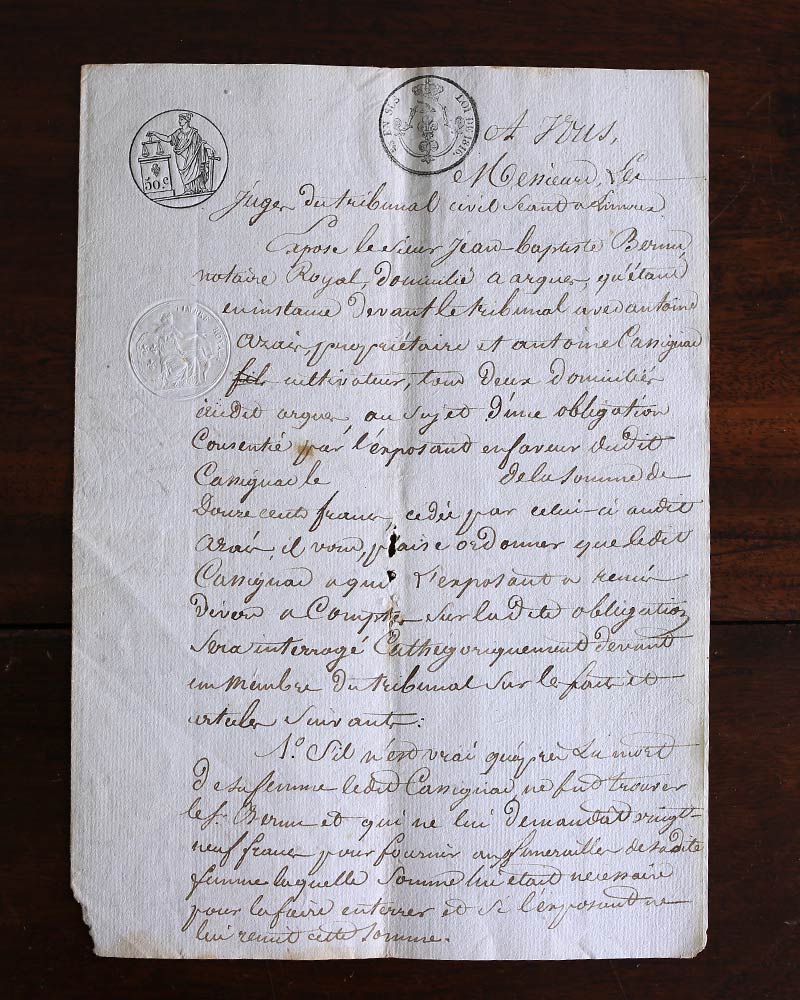 50 c
EN SUS LOI DE 1816
A Vous,
Messieurs, Les
Juges du tribunal civil séant a Limoux
Expose le sieur Jean-baptiste
notaire Royal, domicilié a arques, qu'étant
en instance devant le tribunal avec antoine
azais propriétaire et antoine Cassignac
fils cultivateur, tous deux domiciliés
audit arques au sujet d'une obligation
Consentie par l'exposant en faveur dudit
Cassignac le de la somme de
Douze cents francs, cedée par celui-ci audit
azais, il vous plaise ordonner que ledit
Cassignac a qui l'exposant a remis
divers a Comptes sur la dite obligation
sera interrogé Cathegoriquement devant
un Membre du tribunal sur les faits et
articles suivants:
1.° S'il n'est vrai qu'après La mort
de sa femme ledit Cassignac ne fut trouver
le s.r et qui ne lui demandât vingt-
neuf francs pour fournir aux funerailles de sadite
femme laquelle somme lui était nécessaire
pour la faire enterrer et si l'exposant ne
lui remit cette somme.